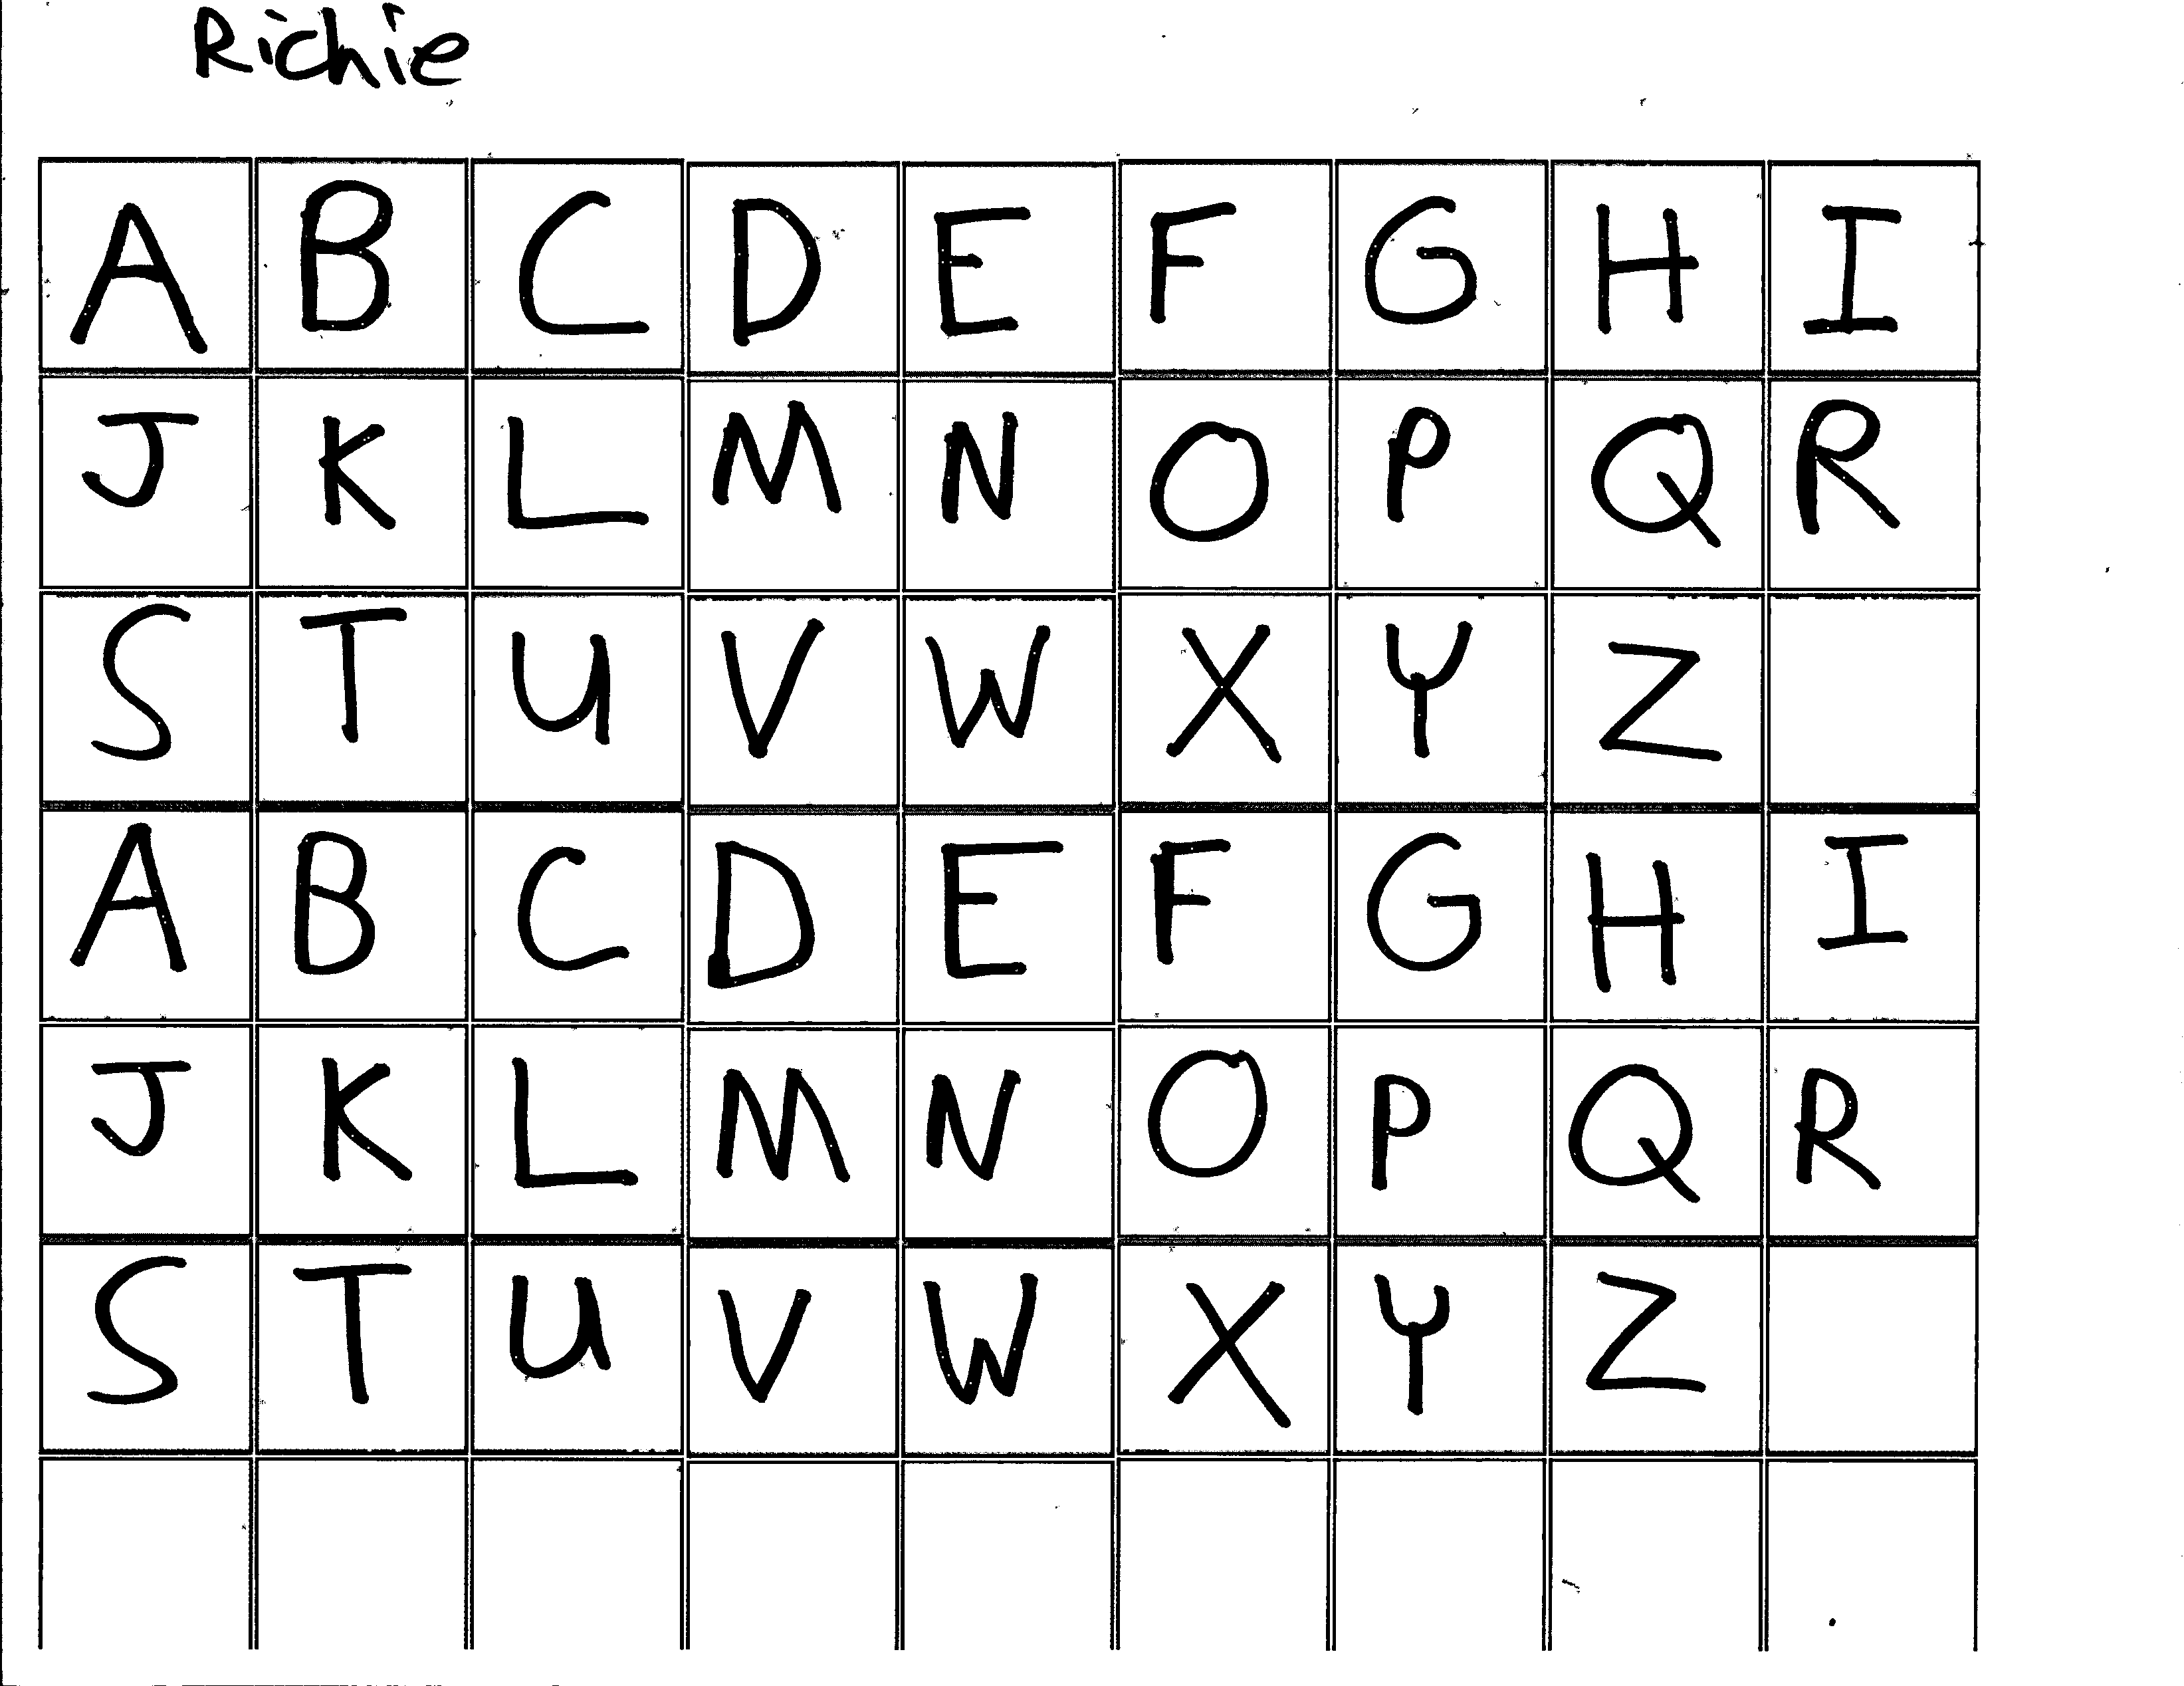 Richie
A B C D E F G H I
J K L M N O P Q R
S T U V W X Y Z
A B C D E F G H I
J K L M N O P Q R
S T U V W X Y Z